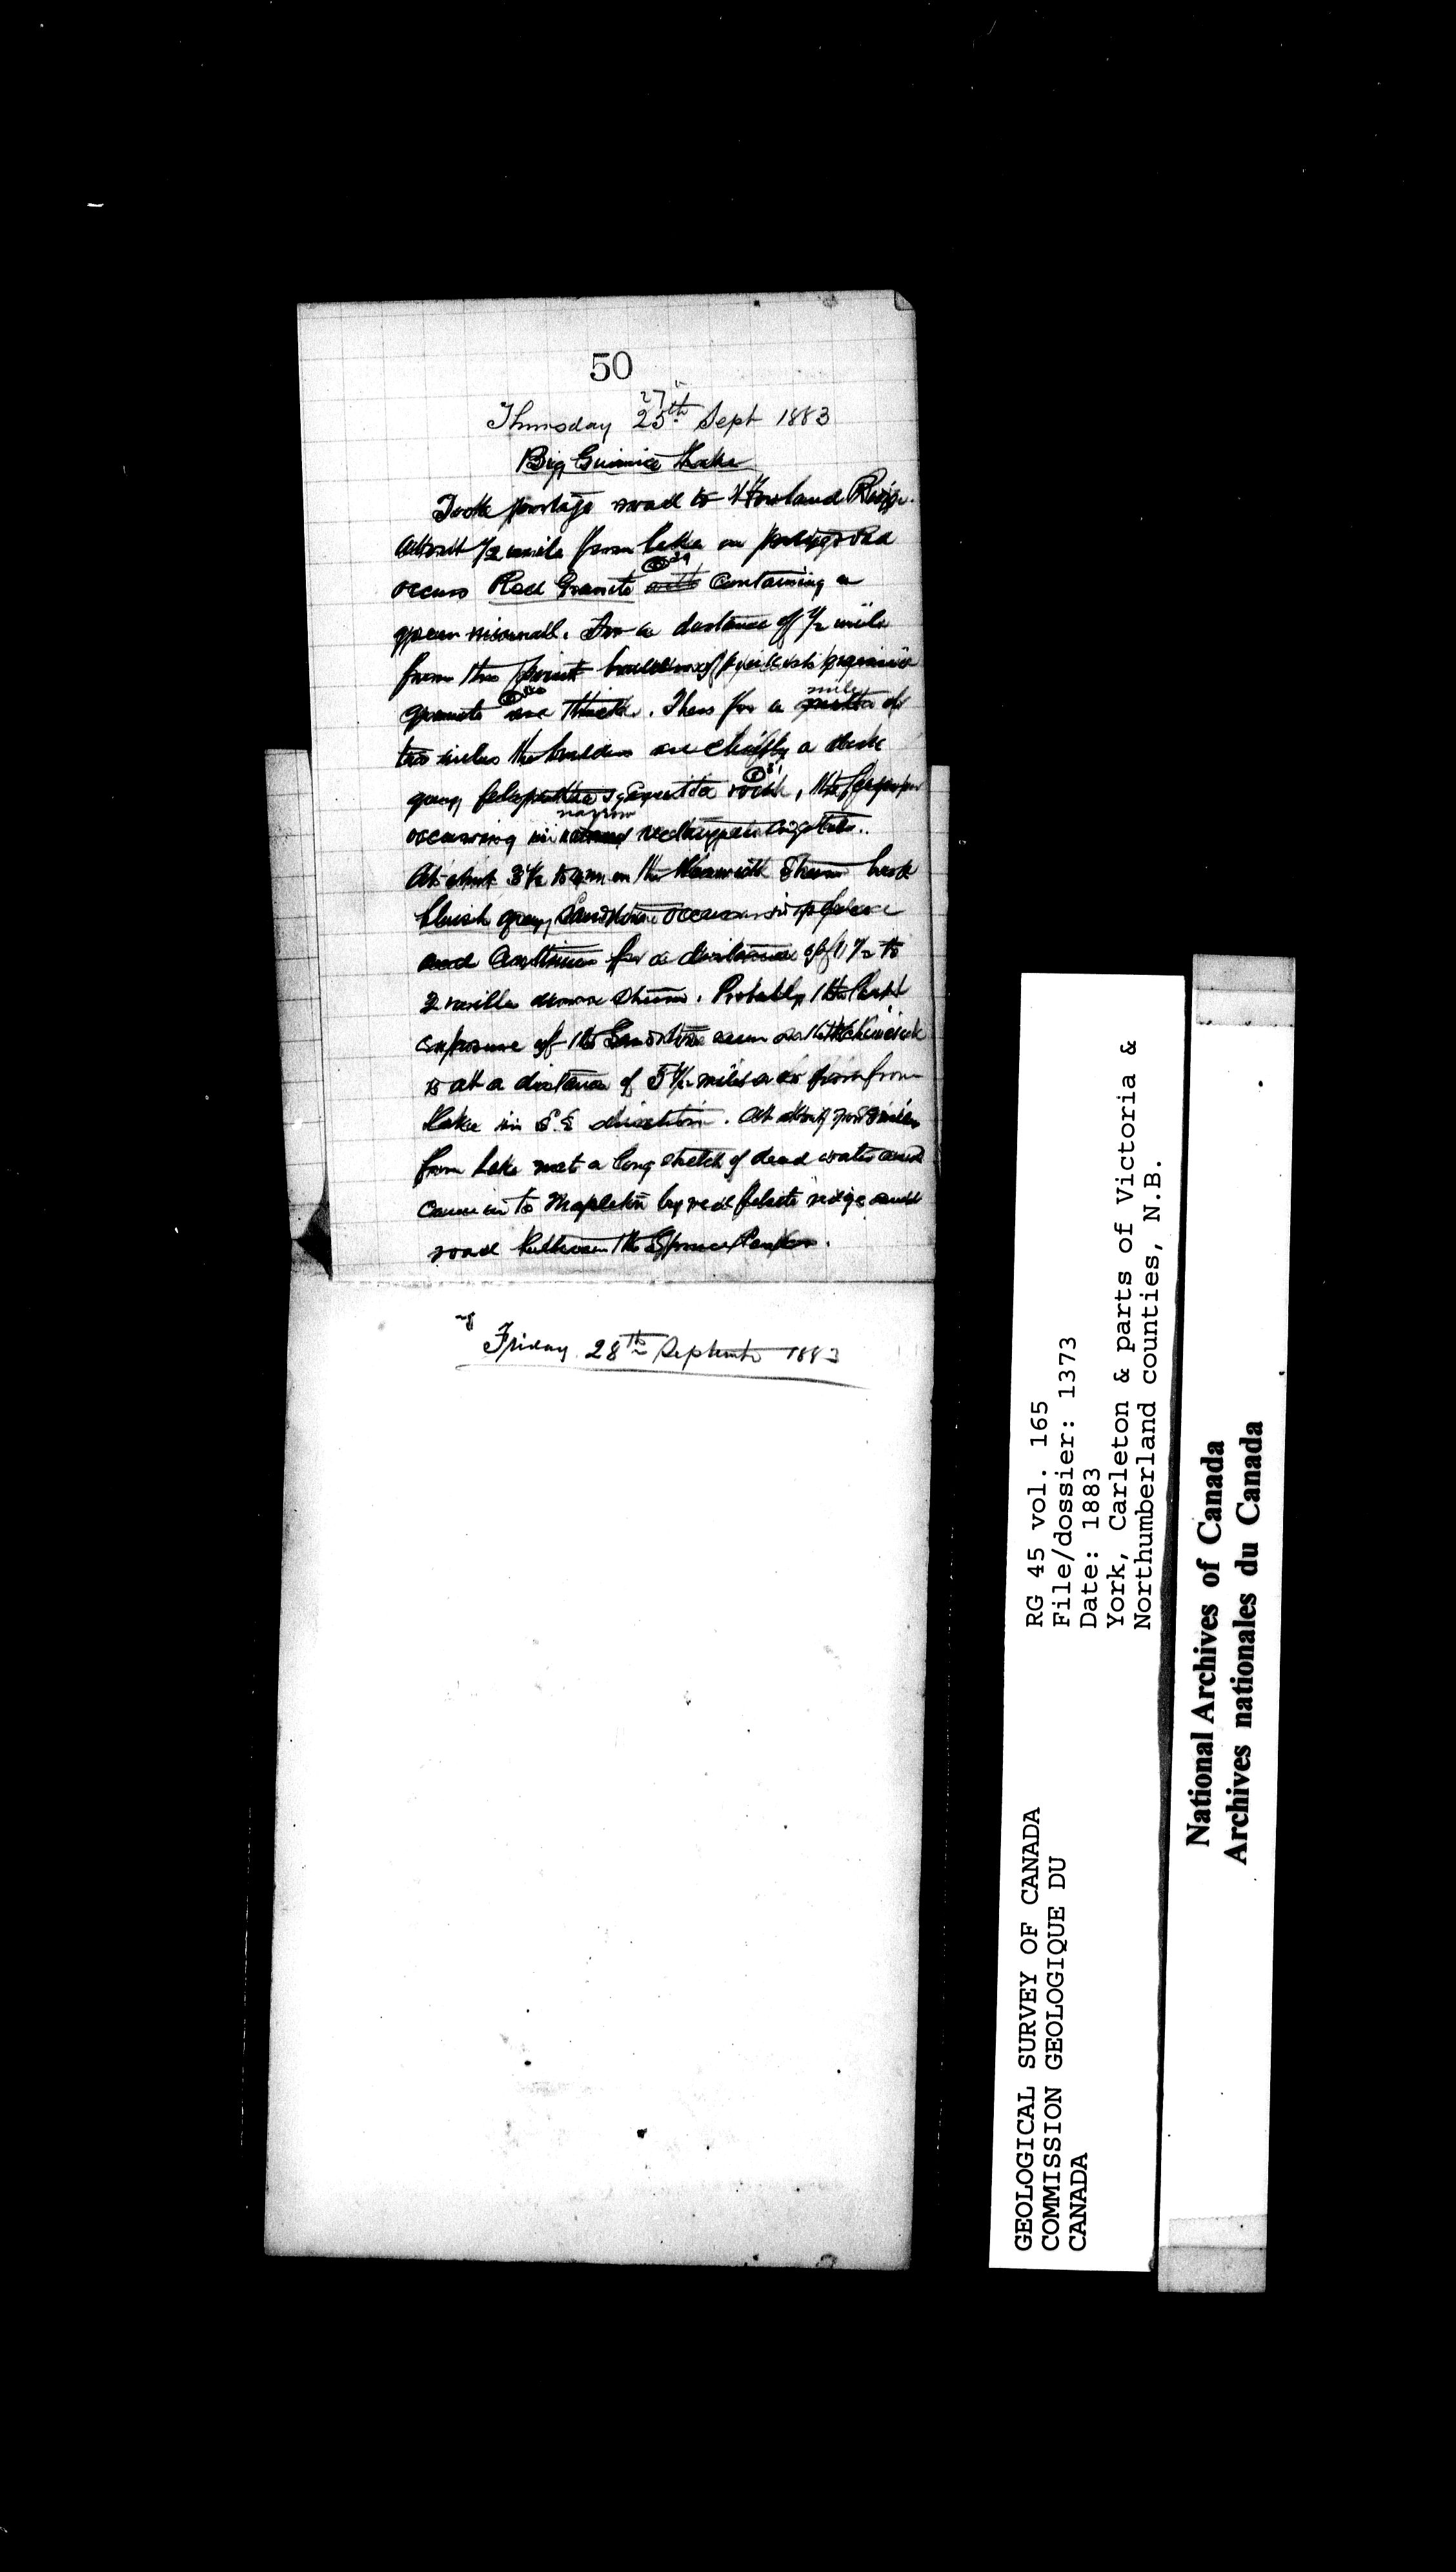 50
27
Thursday 25th Sept 1883
Big Guimic Lake
Took portage road to Howland Ridge.
About 1/2 mile from lake on portage road
occurs Red Granite with containing a
green mineral. For a distance of 1/2 mile
from this point boulders of
granite are thick. Then for a mile or
two miles the boulders are chiefly a dark
gray rock, the
narrow
occurring in
At about 3 1/2 to 4 m on the Stream
bluish gray Sandstone occurs in place
and continues for a distance of 1 1/2 to
2 miles down Stream. Probably the last
exposure of the Sandstone seen on the
is at a distance of 5 1/2 miles or so from
Lake in S.E direction. At about
from Lake met a long stretch of dead water and
came in to Mapleton by red felsite ridge and
road between the
Friday 28th September 1883
GEOLOGICAL SURVEY OF CANADA
COMMISSION GEOLOGIQUE DU
CANADA
RG 45 vol. 165
File/dossier: 1373
Date: 1883
York, Carleton & parts of Victoria &
Northumberland counties, N.B.
National Archives of Canada
Archives nationales du Canada